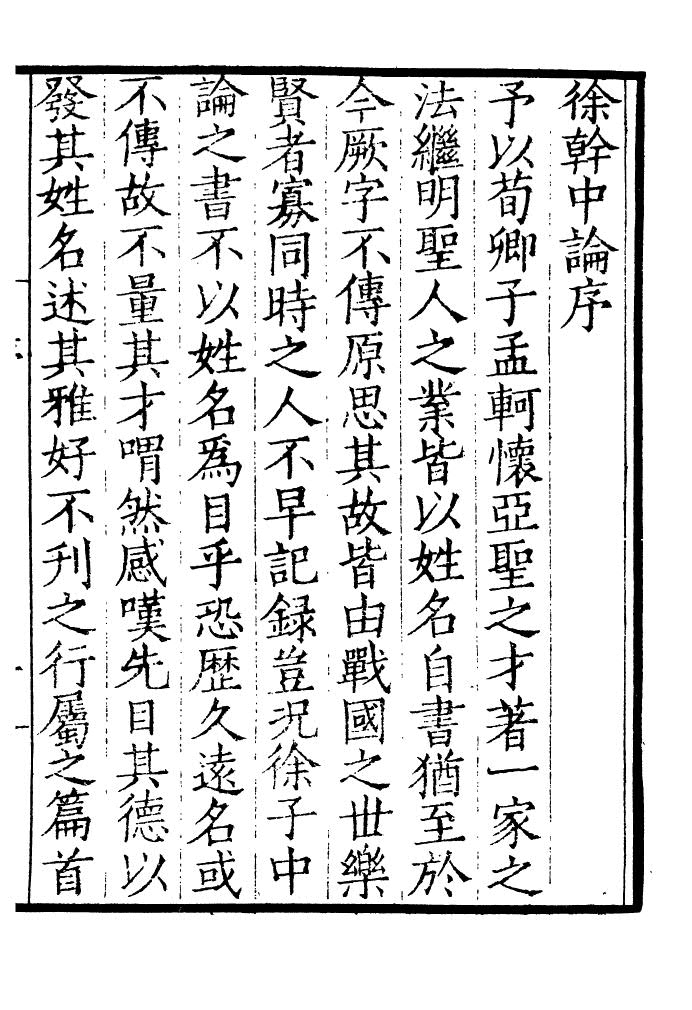 徐幹中論序
予以荀卿子孟軻懷亞聖之才著一家之
法繼明聖人之業皆以姓名自書猶至於
今厥字不傳原思其故皆由戰國之世樂
賢者寡同時之人不早記録豈況徐子中
論之書不以姓名爲目乎恐歷久遠名或
不傳故不量其才喟然感嘆先目其德以
發其姓名述其雅好不刋之行屬之篇首